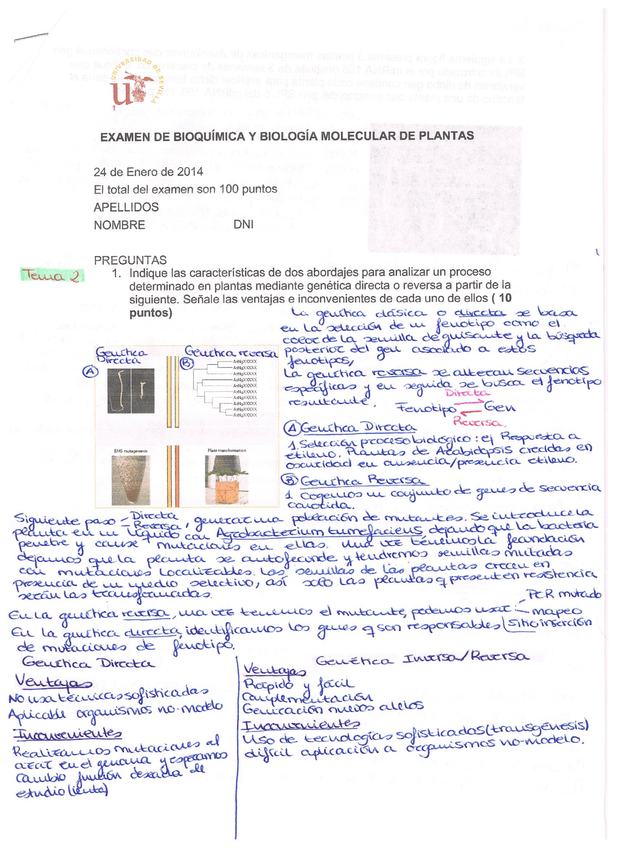 UNIVERSIDAD DE SEVILLA
EXAMEN DE BIOQUÍMICA Y BIOLOGÍA MOLECULAR DE PLANTAS
24 de Enero de 2014
El total del examen son 100 puntos
APELLIDOS
NOMBRE DNI
PREGUNTAS
Tema 2
1. Indique las características de dos abordajes para analizar un proceso
determinado en plantas mediante genética directa o reversa a partir de la
siguiente. Señale las ventajas e inconvenientes de cada uno de ellos ( 10
puntos)
La genética clásica o directa se basa
en la selección de un fenotipo como el
color de la semilla de guisante y la búsqueda
posterior del gen asociado a estos
fenotipos,
La genética reversa se alteran secuencias
específicas y en seguida se busca el fenotipo
resultante.
Directa
Fenotipo Gen
Reversa
Genética Directa
Genética reversa
A
B
EMS mutagenesis
Plant transformation
A Genética Directa
1. Selección proceso biológico: ej Respuesta a
etileno. Plantas de Arabidopsis crecidas en
oscuridad en ausencia/presencia etileno.
B Genética Reversa
1. Cogemos un conjunto de genes de secuencia
conocida.
Siguiente paso - Directa
Reversa, generar una población de mutantes. Se introduce la
planta en un líquido con Agrobacterium tumefaciens dejando que la bacteria
penetre y cause mutaciones en ellas. una vez tenemos la fecundación
dejamos que la planta se autofecunde y tendremos semillas mutadas
con mutaciones localizables. Las semillas de las plantas crecen en
presencia de un medio selectivo, así sólo las plantas q presenten resistencia
serán las transformadas.
En la genética reversa, una vez tenemos el mutante, podemos usar: PCR mutado
mapeo
Sitio inserción
En la genética directa, identificamos los genes q son responsables
de mutaciones de fenotipo.
Genética Directa
Ventajas
No usa técnicas sofisticadas
Aplicable organismos no-modelo
Inconvenientes
Realizamos mutaciones al
azar en el genoma y esperamos
cambio función deseada de
estudio (lento)
Genética Inversa/Reversa
Ventajas
Rápido y fácil
Complementación
Generación nuevos alelos
Inconvenientes
Uso de tecnologías sofisticadas (transgénesis)
difícil aplicación a organismos no-modelo.